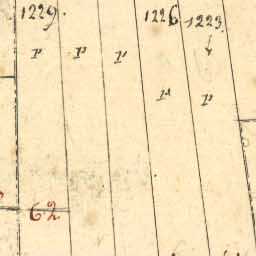 1229. 1226 1223.
P P P
P P
62